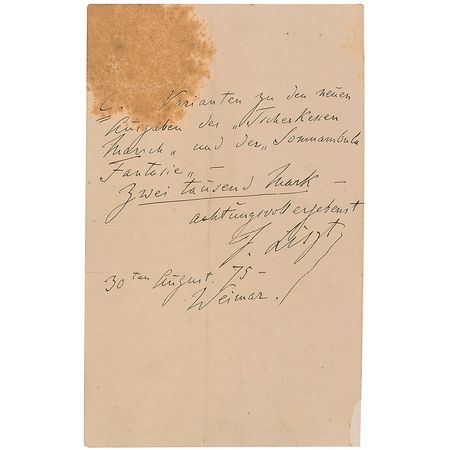 C. Varianten zu den neuen
Ausgaben des „Tscherkessen
Marsch„ und der „Sonnambula
Fantasie„ —
Zwei tausend Mark —
achtungsvoll ergebenst
F. Liszt
30ten August. 75 –
Weimar.